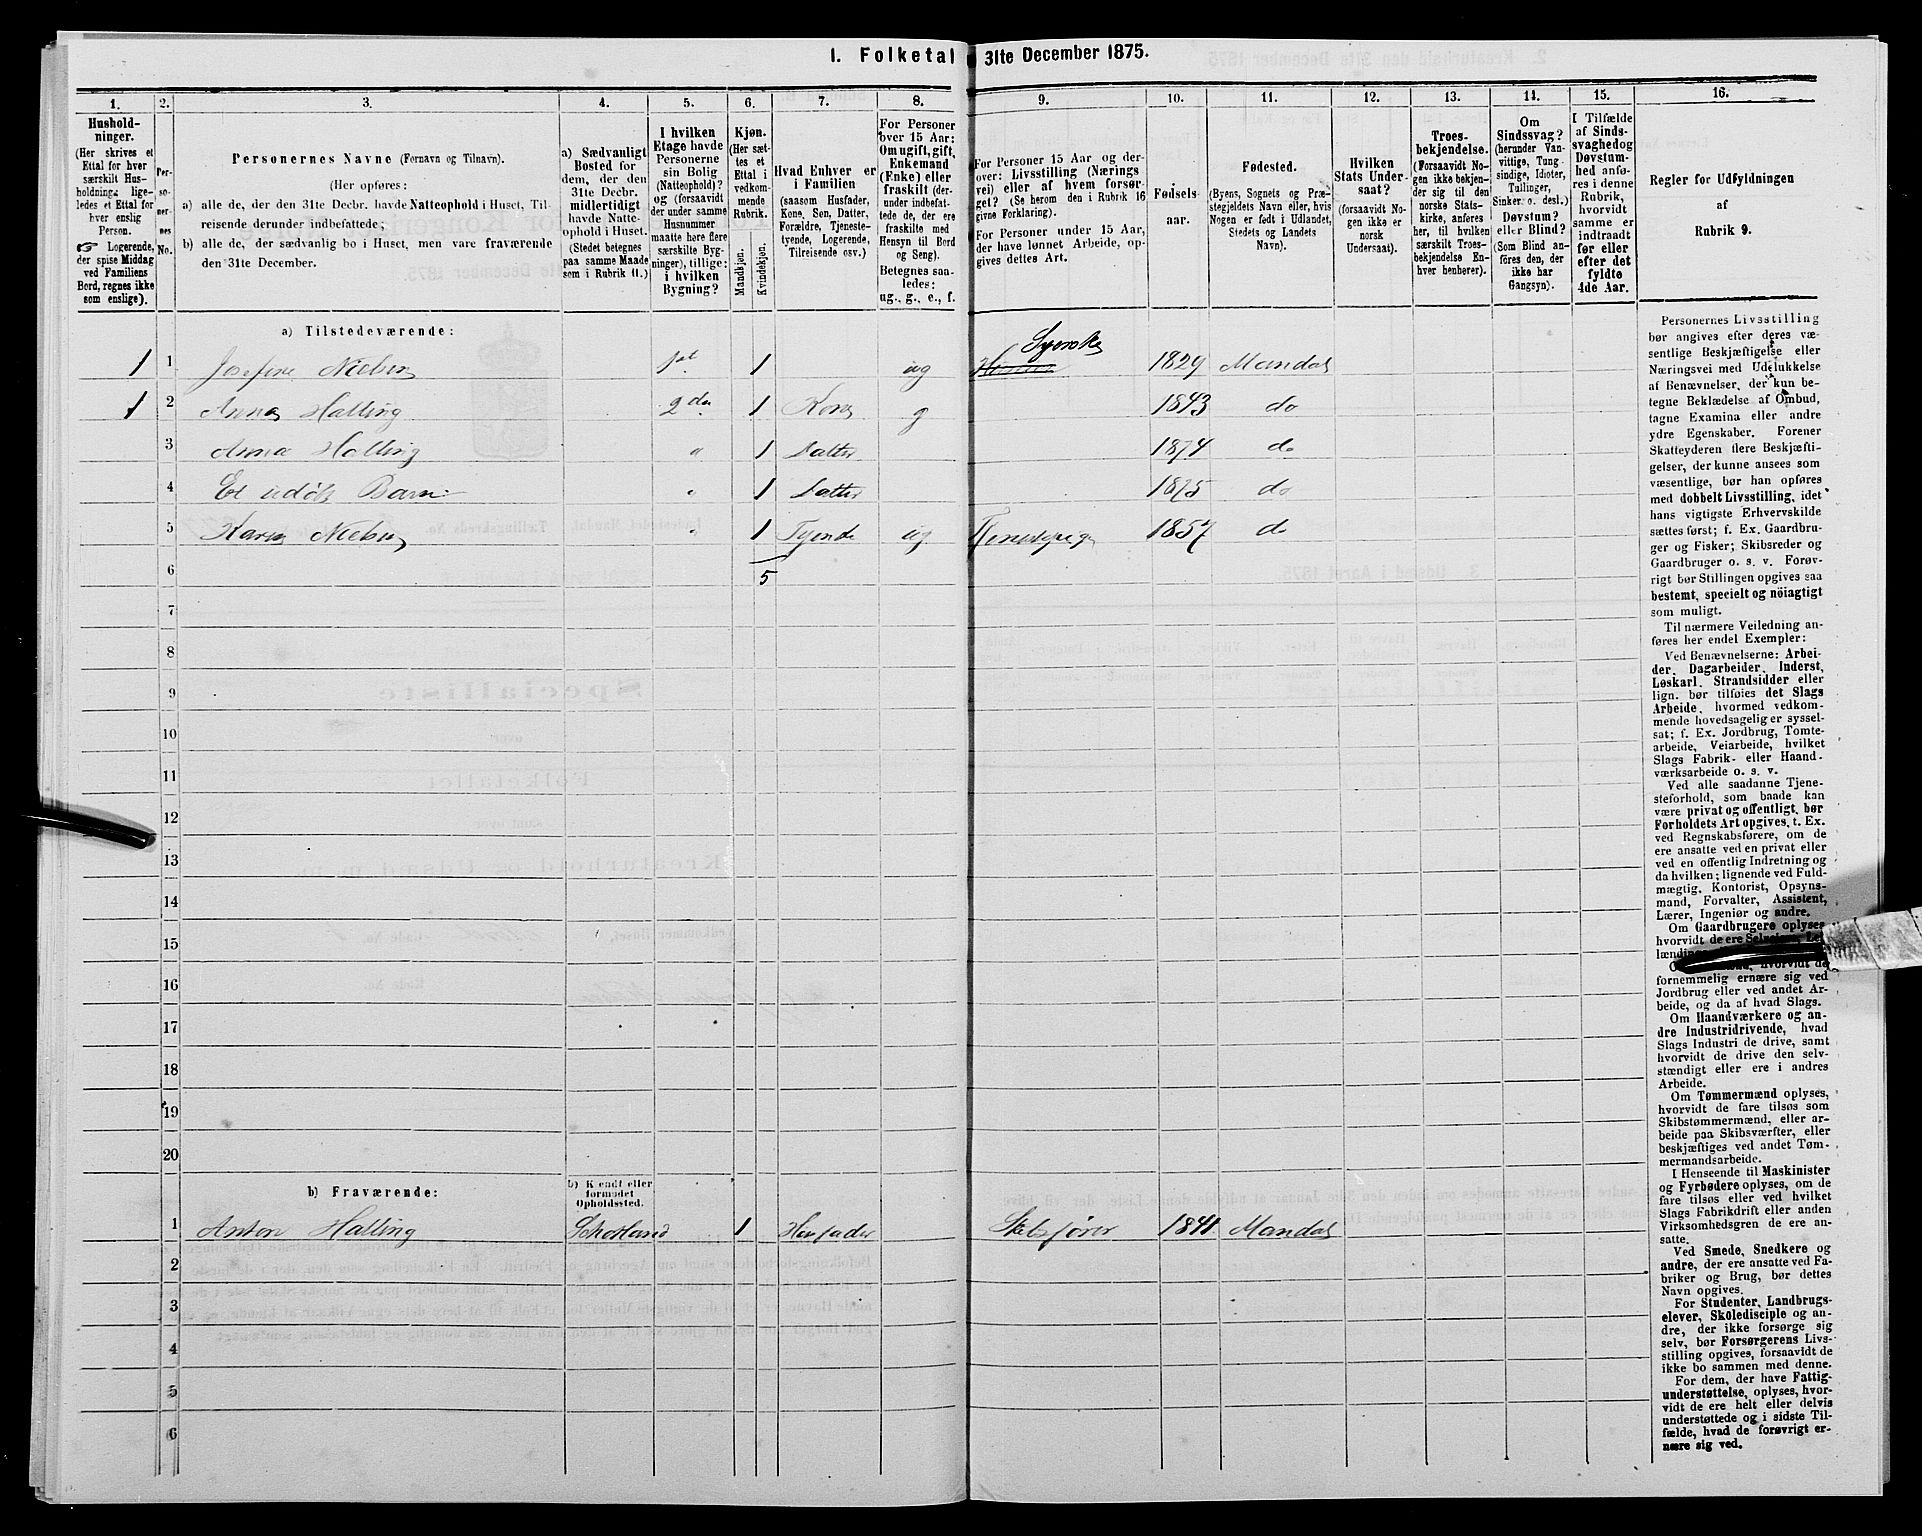 1. Folketal 31te December 1875.
1. 2. 3. 4. 5. 6. 7. 8. 9. 10. 11. 12. 13. 14. 15. 16.
Hushold-
ninger.
(Her skrives et
Ettal for hver
særskilt Hus-
holdning; lige-
ledes et Ettal for
hver enslig
Person.
☞ Logerende,
der spise Middag
ved Familiens
Bord, regnes ikke
som enslige).
Per-
so-
ner-
nes
No.
Personernes Navne (Fornavn og Tilnavn).
(Her opføres:
a) alle de, der den 31te Decbr. havde Natteophold i Huset, Til-
reisende derunder indbefattede;
b) alle de, der sædvanlig bo i Huset, men vare fraværende
den 31te December.
a) Sædvanligt
Bosted for
dem, der den
31te Decbr.
midlertidigt
havde Natte-
ophold i Huset.
(Stedet betegnes
paa samme Maade
som i Rubrik 11.)
I hvilken
Etage havde
Personerne
sin Bolig
(Natteophold)?
og (forsaavidt
der under samme
Husnummer
maatte høre flere
særskilte Byg-
ninger), tillige:
i hvilken
Bygning?
Kjøn.
(Her sæt-
tes et
Ettal i
vedkom-
mende
Rubrik.
Mandkjøn.
Kvindekjøn.
Hvad Enhver er
i Familien
(saasom Husfader,
Kone, Søn, Datter,
Forældre, Tjeneste-
tyende, Logerende,
Tilreisende osv.)
For Personer
over 15 Aar:
Om ugift, gift,
Enkemand
(Enke) eller
fraskilt (der-
under indbefat-
tede de, der ere
fraskilte med
Hensyn til Bord
og Seng).
Betegnes saa-
ledes:
ug., g., e., f.
For Personer 15 Aar og der-
over: Livsstilling (Nærings
vei) eller af hvem forsør-
get? (Se herom den i Rubrik 16
givne Forklaring).
For Personer under 15 Aar,
der have lønnet Arbeide, op-
gives dettes Art.
Fødsels-
aar.
Fødested.
(Byens, Sognets og Præ-
stegjeldets Navn eller, hvis
Nogen er født i Udlandet,
Stedets og Landets
Navn).
Hvilken
Stats Under-
saat?
(forsaavidt No-
gen ikke er
norsk
Undersaat).
Troes-
bekjendelse.
(Forsaavidt No-
gen ikke bekjen-
der sig til den
norske Stats-
kirke, anføres
her, til hvilken
særskilt Troes-
bekjendelse En-
hver henhører).
Om
Sindssvag?
(herunder Van-
vittige, Tung-
sindige, Idioter,
Tullinger,
Sinker o. desl.)
Døvstum?
eller Blind?
(Som Blind an-
føres den, der
ikke har
Gangsyn).
I Tilfælde
af Sinds-
svaghed og
Døvstum-
hed anfø-
res i denne
Rubrik,
hvorvidt
samme er
indtraadt
før eller
efter det
fyldte
4de Aar.
Regler for Udfyldningen
af
Rubrik 9.
a) Tilstedeværende:
Syerske
1 1 Josefine Nielsen 1st 1 ug 1829 Mandal
1 2 Anna Halling 2den 1 Kone g 1843 do
3 Anna Halling " 1 Datter 1874 do
4 Et udøbt Barn " 1 Datter 1875 do
5 Karen Nielsen " 1 Tyende ug Tjenestepige 1857 do
6 5
7
8
9
10
11
12
13
14
15
16
17
18
19
20
b) Fraværende:
b) Kjendt eller
formodet
Opholdssted.
1 Anton Halling Schotland 1 Husfader Skibsfører 1841 Mandal
2
3
4
5
6
Personernes Livsstilling
bør angives efter deres væ-
sentlige Beskjæftigelse eller
Næringsvei med Udelukkelse
af Benævnelser, der kun be-
tegne Beklædelse af Ombud,
tagne Examina eller andre
ydre Egenskaber. Forener
Skatteyderen flere Beskjæfti-
gelser, der kunne ansees som
væsentlige, bør han opføres
med dobbelt Livsstilling, idet
hans vigtigste Erhvervskilde
sættes først; f. Ex. Gaardbru-
ger og Fisker; Skibsreder og
Gaardbruger o. s. v. Forøv-
rigt bør Stillingen opgives saa
bestemt, specielt og nöiagtigt
som muligt.
Til nærmere Veiledning an-
føres her endel Exempler:
Ved Benævnelserne: Arbei-
der, Dagarbeider, Inderst,
Løskarl, Strandsidder eller
lign. bør tilføies det Slags
Arbeide, hvormed vedkom-
mende hovedsagelig er syssel-
sat; f. Ex. Jordbrug, Tomte-
arbeide, Veiarbeide, hvilket
Slags Fabrik- eller Haand-
værksarbeide o. s. v.
Ved alle saadanne Tjene-
steforhold, som baade kan
være privat og offentligt, bør
Forholdets Art opgives, t. Ex.
ved Regnskabsførere, om de
ere ansatte ved en privat eller
ved en offentlig Indretning og
da hvilken; lignende ved Fuld-
mægtig, Kontorist, Opsyns-
mand, Forvalter, Assistent,
Lærer, Ingeniør og andre.
Om Gaardbrugere oplyses,
hvorvidt de ere
hvorvidt de
fornemmelig ernære sig ved
Jordbrug eller ved andet Ar-
beide, og da af hvad Slags.
Om Haandværkere og an-
dre Industridrivende, hvad
Slags Industri de drive, samt
hvorvidt de drive den selv-
stændigt eller ere i andres
Arbeide.
Om Tømmermænd oplyses,
hvorvidt de fare tilsøs som
Skibstømmermænd, eller ar-
beide paa Skibsværfter, eller
beskjæftiges ved andet Tøm-
mermandsarbeide.
I Henseende til Maskinister
og Fyrbødere oplyses, om de
fare tilsøs eller ved hvilket
Slags Fabrikdrift eller anden
Virksomhedsgren de ere an-
satte.
Ved Smede, Snedkere og
andre, der ere ansatte ved Fa-
briker og Brug, bør dettes
Navn opgives.
For Studenter, Landbrugs-
elever, Skoledisciple og an-
dre, der ikke forsørge sig
selv, bør Forsørgerens Livs-
stilling opgives, forsaavidt de
ikke bo sammen med denne.
For dem, der have Fattig-
understøttelse, oplyses, hvor-
vidt de ere helt eller delvis
understøttede og i sidste Til-
fælde, hvad de forøvrigt er-
nære sig ved.